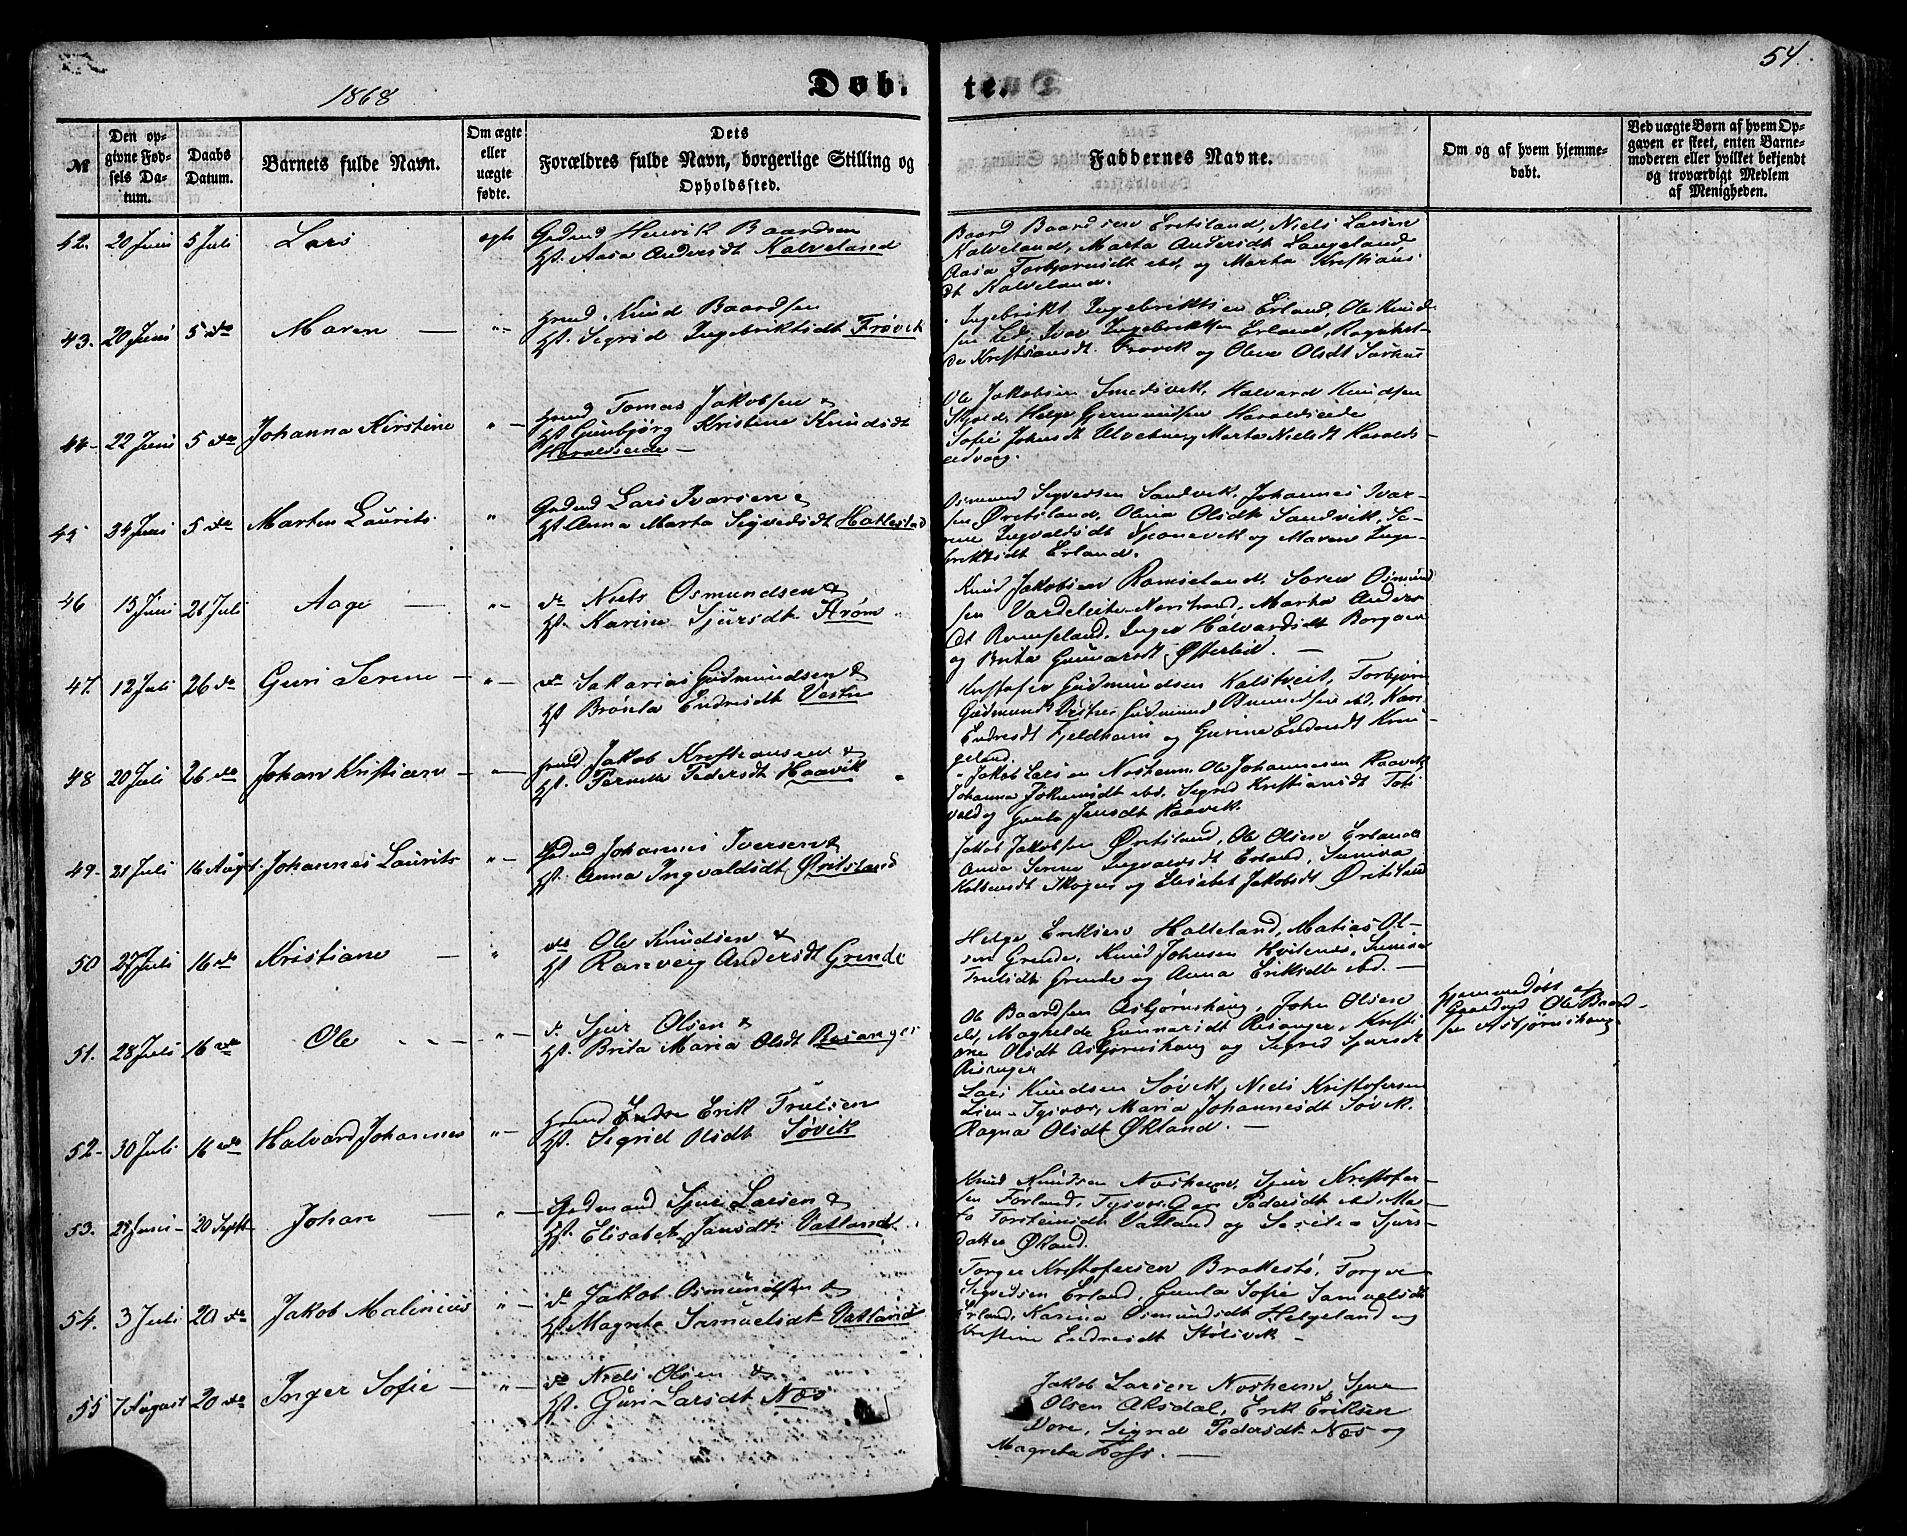 54.
1868
Døb.
te.
№
Den op-
givne Fød-
sels Da-
tum.
Daabs
Datum.
Barnets fulde Navn.
Om ægte
eller
uægte
fødte.
Dets
Forældres fulde Navn, borgerlige Stilling og
Opholdssted.
Faddernes Navne.
Om og af hvem hjemme-
døbt.
Ved uægte Børn af hvem Op-
gaven er skeet, enten Barne-
moderen eller hvilket bekjendt
og troværdigt Medlem
af Menigheden.
42. 20 Juni 5 Juli Lars ægte Gdmd Henrik Baardsen
Hst. Aasa Andersdt Kalveland
Baard Baardsen Eretsland, Niels Larsen
Kalveland, Marta Andersdt Langeland,
Aasa Torbjørnsdt ebd, og Marta Kristians
dt Kalveland.
43. 20 Juni 5 do Maren — "-
Hmd. Knud Baardsen
Hst. Sigrid Ingebriktsdt Frøvik
Ingebrikt Ingebriktsen Erland, Ole Knud-
sen Lid, Ivar Ingebriktsen Erland, Ragnhel-
de Kristiansdt. Frøvik og Olene Olsdt Sørhus
44- 22 Juni 5 do Johanna Kirstine "-
Hmd Tomas Jakobsen &
Hst Gunbjørg Kristine Knudsdt
Haraldseide —
Ole Jakobsen Smedsvik, Halvard Knudsen
Skjold, Helge Germundsen Haraldseide
Sofie Johnsdt Ulveberg Marta Nielsdt Haralds-
eidvaag.
45 24 Juni 5 do Marten Laurits "
Gdmd Lars Ivarsen &
Hst Anna Marta Sigvedsdt Hatlestad
Osmund Sigvedsen Sandvik, Johannes Ivar-
sen Øretsland, Olena Olsdt Sandvik, Se-
rine Ingvaldsdt Sponevik og Maren Inge-
briktsdt Erland.
46 15 Juni 26 Juli Aage — "-
do Niels Osmundsen &
Hst. Karine Sjursdt Strøm
Knud Jakobsen Ramseland, Soren Osmund
sen Vardeleite-Norstrand, Marta Anders
dt Romseland, Inger Halvardsdt Borgaen
og Brita Gunnarsdt Østerlid. —
47. 12 Juli 26 do Guri Serene — "-
do Sakarias Gudmundsen &
Hst. Brønla Endresdt Vestre
Kristofer Gudmundsen Kalstveit, Torbjørn
Gudmunds Vestre, Gudmund ebd, Kari
Endresdt Fjeldheim og Gurine Endresdt Krin-
geland.
48 20 Juli 26 do Johan Kristian — "-
Hmd. Jakob Kristiansen &
Hst. Pernille Pedersdt Haavik
Jakob Larsen Nosheim, Ole Johannesen Haavik,
Johanna Jokumsdt ebd. Sigrid Kristiansdt Tos
vold og Gunla Jensdt Haavik.
49. 21 Juli 16 August Johannes Laurits "-
Gdmd Johannes Iversen &
Hst. Anna Ingvaldsdt Øretsland
Jakob Jakobsen Øretsland, Ole Olsen Erland
Anna Serene Ingvaldsdt Erland, Suniva
Skogen og Elisabet Jakobsdt Øretsland
50 27 Juli 16 do Kristiane — "
do Ole Knudsen &
Hst. Ranveig Andersdt Grinde
Helge Eriksen Halteland, Matias Ol-
sen Grinde, Knud Johnsen Hvitenes, Suniva
Trulsdt Grinde og Anna Eriksdt ebd. —
51. 28 Juli 16 do Ole — "-
do Sjur Olsen &
Hst. Brita Maria Olsdt Risanger
Ole Baardsen Asbjørnshaug, John Olsen
Lid, Maghelde Gunnarsdt Risanger, Kristi
ane Olsdt Asbjørnshaug og Sigrid Sjursdt
Risanger
Hjemmedøbt af
Gaardmd Ole Baard-
sen Asbjørnshaug
52. 30 Juli 16 do Halvard Johannes "-
Hmd Endre Erik Trulsen
Hst. Sigrid Olsdt Søvik
Lars Knudsen Søvik, Niels Kristofersen
Lien-Tysvær, Maria Johannesdt Søvik.
Ragna Olsdt Økland. —
53. 28 Juni 20 Septr Johan — "-
Gdmand Sjur Larsen &
Hst. Elisabet Jansdt Vatland
Knud Knudsen Nosheim, Sjur Kristofer-
sen Førland, Tysvær, Pedersdt ebd, Ma-
ta Torsteinsdt Vatland og Sesilia Sjurs-
datter Økland.
54. 3 Juli 20 do Jakob Malinius "-
do Jakob Osmundsen &
Hst Magreta Samuelsdt Vatland
Torger Kristofersen Brakestø, Torger
Sigvedsen Erland, Gunla Sofie Samuelsdt
Erland, Karina Osmundsdt Helgeland og
Kristine Endresdt Stølsvik —
55 7 August 20 do Inger Sofie — "-
do Niels Olsen &
Hst. Guri Larsdt Næs
Jakob Larsen Nosheim, Sjur
Olsen Aksdal, Erik Eriksen
Dove, Sigrid Pedersdt Næs og
Magreta —